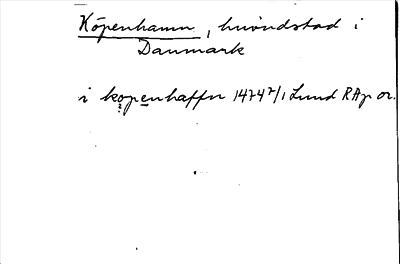 Köpenhamn, huvudstad i
Danmark
i kopenhaffn 1474 7/1 Lund RAp or.